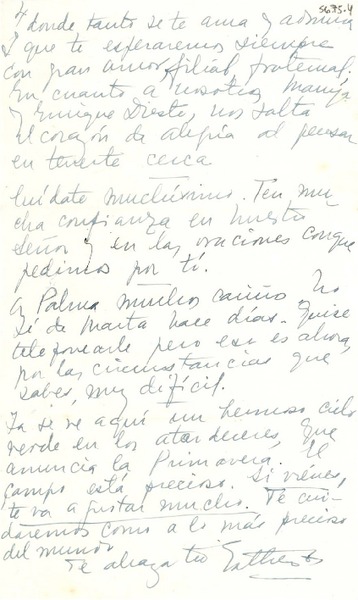 5635-4
4/ donde tanto se te ama y admira
y que te esperaremos siempre
con gran amor filial, fraternal,
En cuanto a nosotros, Manija
y Enrique Dieste, nos salta
el corazón de alegría al pensar
en tenerte cerca
Cuídate muchísimo. Ten mu-
cha confianza en nuestro
Señor y en las oraciones conque
pedimos por tí.
A Palma muchos cariños. No
sé de Marta hace días. Quise
telefonearle pero eso es ahora,
por las circunstancias que
sabes, muy difícil.
Ya se ve aquí un hermoso cielo
verde en los atardeceres, que
anuncia la Primavera. El
campo está precioso. Si vienes,
te va a gustar mucho. Te cui-
daremos como a lo más precioso
del mundo
Te abraza tu Esther